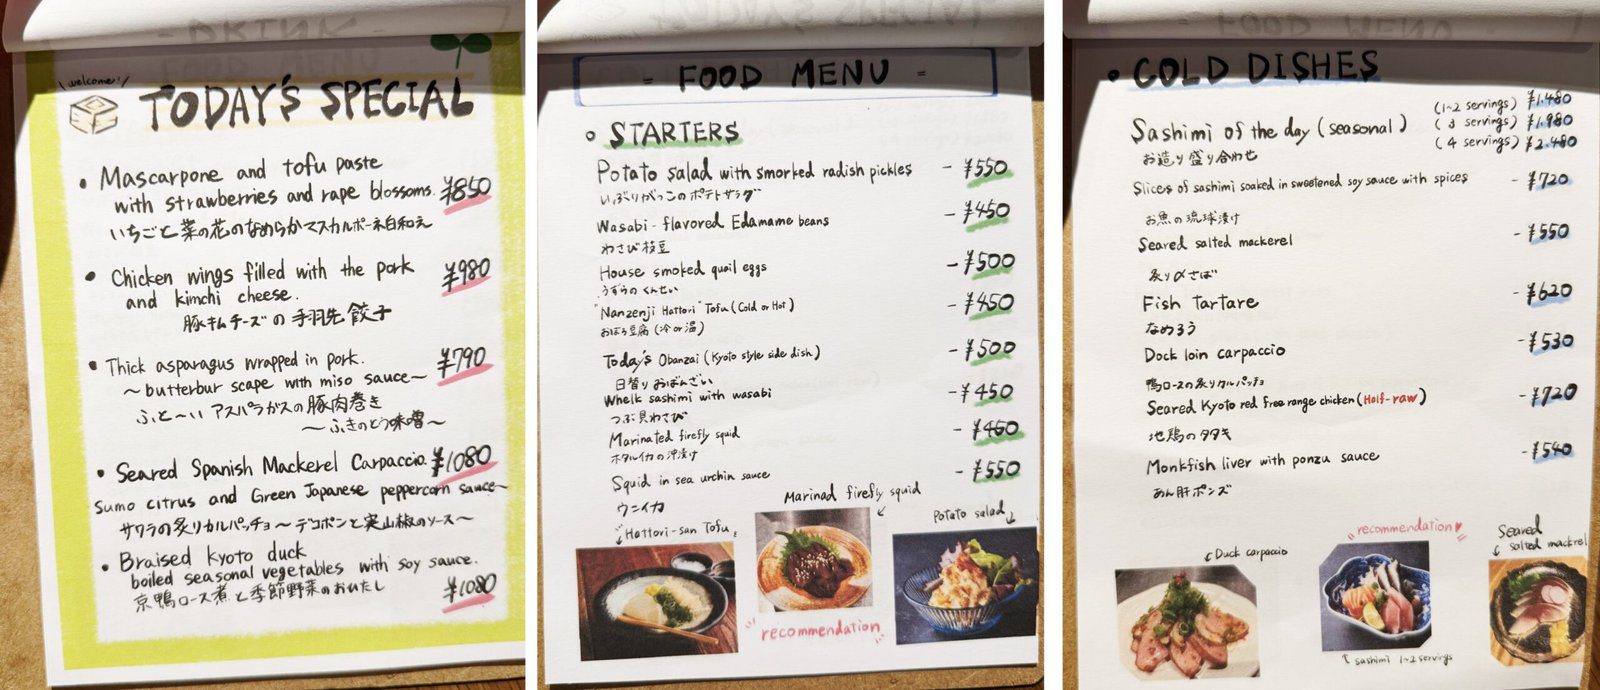 welcome!
TODAY'S SPECIAL
• Mascarpone and tofu paste
with strawberries and rape blossoms. ¥850
いちごと菜の花のなめらかマスカルポーネ白和え
• Chicken wings filled with the pork
and kimchi cheese. ¥980
豚キムチーズの手羽先餃子
• Thick asparagus wrapped in pork. ¥790
～butterbur scape with miso sauce～
ふと～いアスパラガスの豚肉巻き
～ふきのとう味噌～
• Seared Spanish Mackerel Carpaccio. ¥1080
Sumo citrus and Green Japanese peppercorn sauce～
サワラの炙りカルパッチョ～デコポンと実山椒のソース～
• Braised Kyoto duck
boiled seasonal vegetables with soy sauce.
京鴨ロース煮と季節野菜のおひたし ¥1080
= FOOD MENU =
STARTERS
Potato salad with smorked radish pickles - ¥550
いぶりがっこのポテトサラダ
Wasabi-flavored Edamame beans - ¥450
わさび枝豆
House smoked quail eggs - ¥500
うずらのくんせい
"Nanzenji Hattori" Tofu (Cold or Hot) - ¥450
おぼろ豆腐 (冷or温)
Today's Obanzai (Kyoto style side dish) - ¥500
日替りおばんざい
Whelk sashimi with wasabi - ¥450
つぶ貝わさび
Marinated firefly squid - ¥450
ホタルイカの沖漬け
Squid in sea urchin sauce - ¥550
ウニイカ
Hattori-san Tofu
Marinad firefly squid
Potato salad
"recommendation"
• COLD DISHES
Sashimi of the day (seasonal)
(1~2 servings) ¥1.480
(3 servings) ¥1.980
(4 servings) ¥2.480
お造り盛り合わせ
Slices of sashimi soaked in sweetened soy sauce with spices - ¥720
お魚の琉球漬け
Seared salted mackerel - ¥550
炙り〆さば
Fish tartare - ¥620
なめろう
Dock loin carpaccio - ¥530
鴨ロースの炙りカルパッチョ
Seared Kyoto red free range chicken (Half-raw) - ¥720
地鶏のタタキ
Monkfish liver with ponzu sauce - ¥540
あん肝ポンズ
Duck carpaccio
recommendation
Seared
salted mackrel
sashimi 1~2 servings